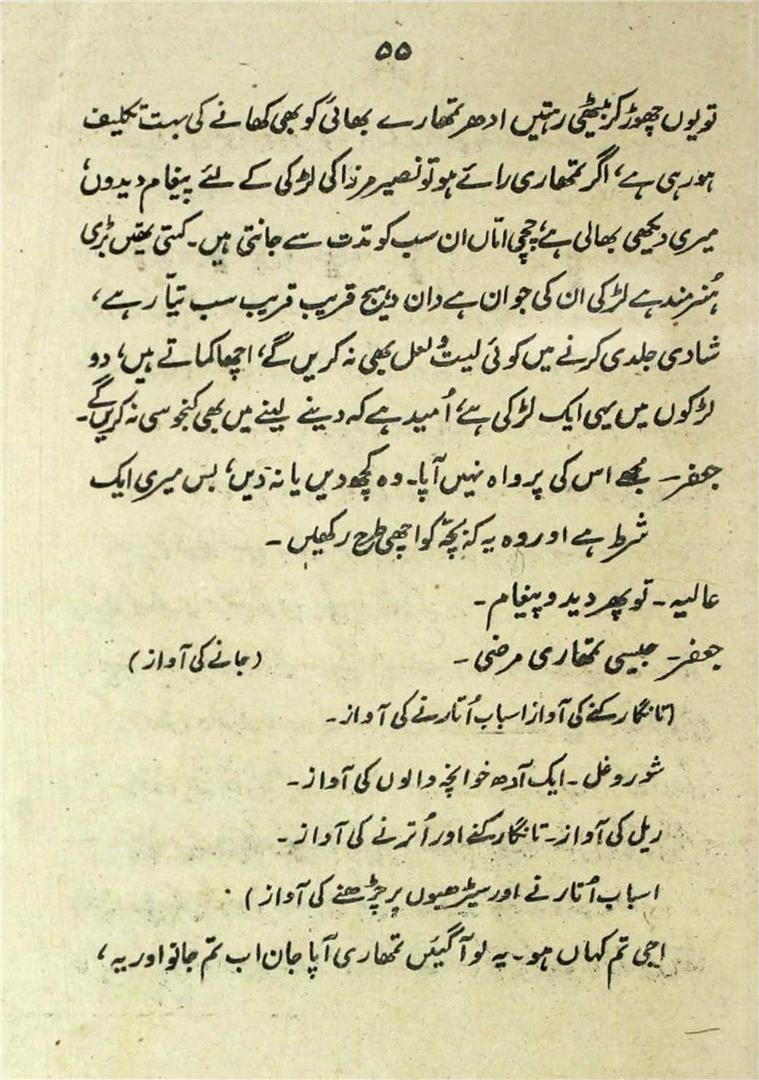 ۵۵
تو یوں چھوڑ کر بیٹھی رہتیں ادھر تمھارے بھائی کو بھی کھانے کی بہت تکلیف
ہو رہی ہے، اگر تمھاری رائے ہو تو نصیر مرزا کی لڑکی کے لئے پیغام دیدوں،
میری دیکھی بھالی ہے، چچی اماں ان سب کو مدت سے جانتی ہیں۔ کہتی تھیں بڑی
ہُنر مند ہے لڑکی ان کی جوان ہے دان دہیج قریب قریب سب تیار ہے،
شادی جلدی کرنے میں کوئی لیت و لعل بھی نہ کریں گے، اچھا کماتے ہیں، دو
لڑکوں میں یہی ایک لڑکی ہے، اُمید ہے کہ دینے لینے میں بھی کنجوسی نہ کریں گے۔
جعفر۔ مجھے اس کی پرواہ نہیں آپا۔ وہ کچھ دیں یا نہ دیں، بس میری ایک
شرط ہے اور وہ یہ کہ بچّہ کو اچھی طرح رکھیں۔
عالیہ۔ تو پھر دیدو پیغام۔
جعفر۔ جیسی تمھاری مرضی۔ (جانے کی آواز)
(تانگا رکنے کی آواز اسباب اُتارنے کی آواز۔
شور و غل۔ ایک آدھ خوانچہ والوں کی آواز۔
ریل کی آواز۔ تانگا رکنے اور اُترنے کی آواز۔
اسباب اُتارنے اور سیڑھیوں پر چڑھنے کی آواز)
اجی تم کہاں ہو۔ یہ لو آگئیں تمھاری آپا جان اب تم جانو اور یہ،